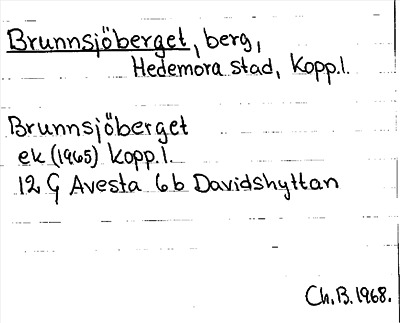 Brunnsjöberget, berg,
Hedemora stad, Kopp.l.
Brunnsjöberget
ek (1965) Kopp.l.
12 G Avesta 6b Davidshyttan
Ch.B.1968.